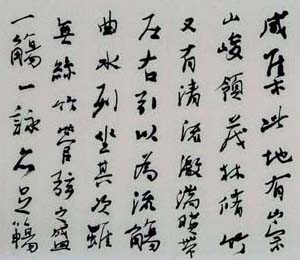 咸集此地有崇
山峻領茂林脩竹
又有清流激湍暎帶
左右引以為流觴
曲水列坐其次雖
無絲竹管弦之盛
一觴一詠亦足暢